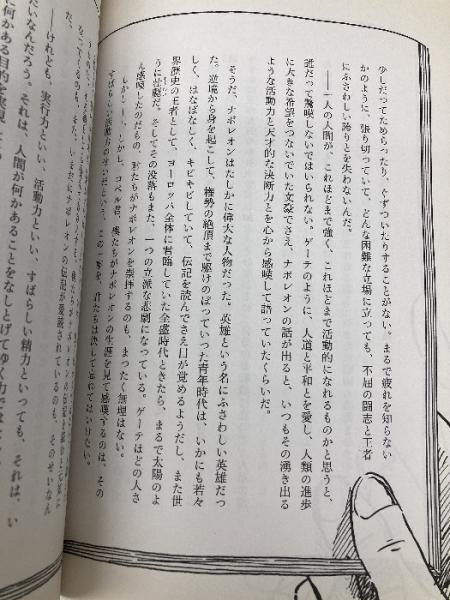 少しだってためらったり、ぐずついたりすることがない。まるで疲れを知らない
かのように、張り切っていて、どんな困難な立場に立っても、不屈の闘志と王者
にふさわしい誇りとを失わないんだ。
――一人の人間が、これほどまで強く、これほどまで活動的になれるものかと思うと、
誰だって驚嘆しないではいられない。ゲーテのように、人道と平和とを愛し、人類の進歩
に大きな希望をつないでいた文豪でさえ、ナポレオンの話が出ると、いつもその湧き出る
ような活動力と天才的な決断力とを心から感嘆して語っていたくらいだ。
そうだ、ナポレオンはたしかに偉大な人物だった。英雄という名にふさわしい英雄だっ
た。逆境から身を起こして、権勢の絶頂まで駆けのぼっていった青年時代は、いかにも若々
しく、はなばなしく、キビキビしていて、伝記を読んでさえ目が覚めるようだし、また世
界歴史の王者として、ヨーロッパ全体に君臨していた全盛時代ときたら、まるで太陽のよ
うに壮麗だ。そしてその没落もまた、一つの立派な悲劇になっている。ゲーテほどの人さ
え感嘆したのだもの、君たちがナポレオンを崇拝するのも、まったく無理はない。
しかし――、いいか、コペル君、僕たちがナポレオンの生涯を見て感嘆するのは、その
すばらしい活動力のせいだという、この一事を、君たちは決して忘れてはいけない。
ナポレオンの伝記が愛読されているのも、そのせいなん
――けれども、実行力といい、活動力といい、すばらしい精力といっても、それは、い
たいなんだろう。それは、人間が何かあることをなしとげてゆく力では
に何かある目的を実現